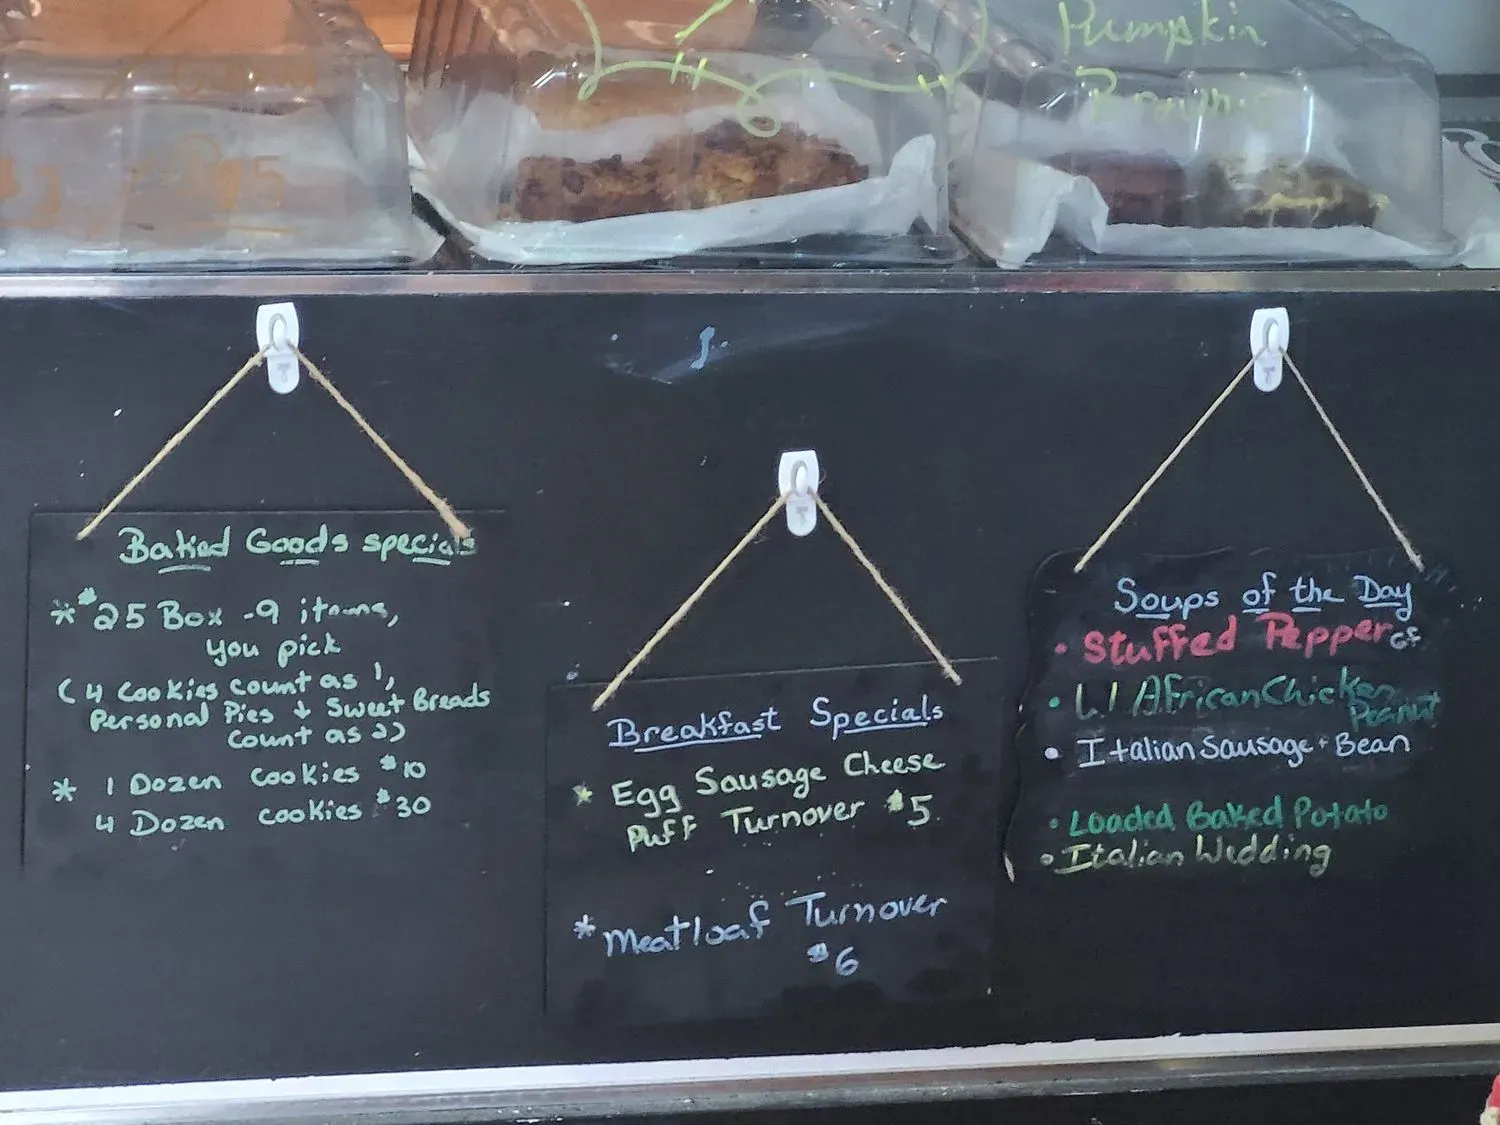 Pumpkin
Brownie
Baked Goods specials
* $25 Box - 9 items,
you pick
(4 cookies count as 1,
Personal Pies + Sweet Breads
count as 2)
* 1 Dozen cookies $10
4 Dozen cookies $30
Breakfast Specials
* Egg Sausage Cheese
Puff Turnover $5
* Meatloaf Turnover
$6
Soups of the Day
• Stuffed Pepper GF
• W African Chicken
Peanut
• Italian Sausage + Bean
• Loaded Baked Potato
• Italian Wedding